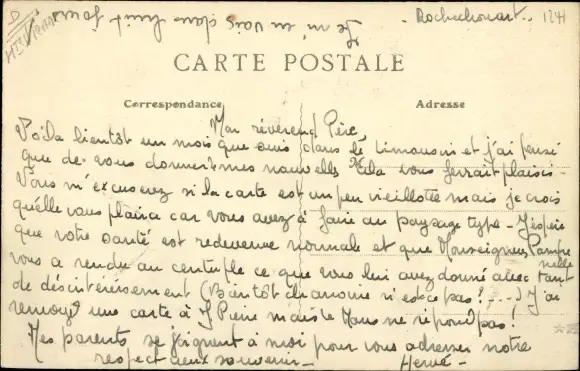 Je m'en vais dans huit jours
- Rochechouart - 1241
Hte Vienne
CARTE POSTALE
Correspondance
Adresse
Mon révérend Père,
Voila bientôt un mois que suis dans le Limousin et j'ai pensé
que de vous donner mes nouvelles cela vous ferrait plaisir -
Vous m'excuserez si la carte est un peu vieillotte mais je crois
qu'elle vous plaira car vous avez à faire au paysage type - J'espère
que votre santé est redevenue normale et que Monseigneur
vous a rendu au centuple ce que vous lui avez donné avec tant
de désintéressement (Bientôt chanoine n'est ce pas ? ...) J'ai
renvoyé une carte à J Pierre mais le Mans ne répond pas !
Mes parents se joignent à moi pour vous adresser notre
respectueux souvenir -
Hervé -